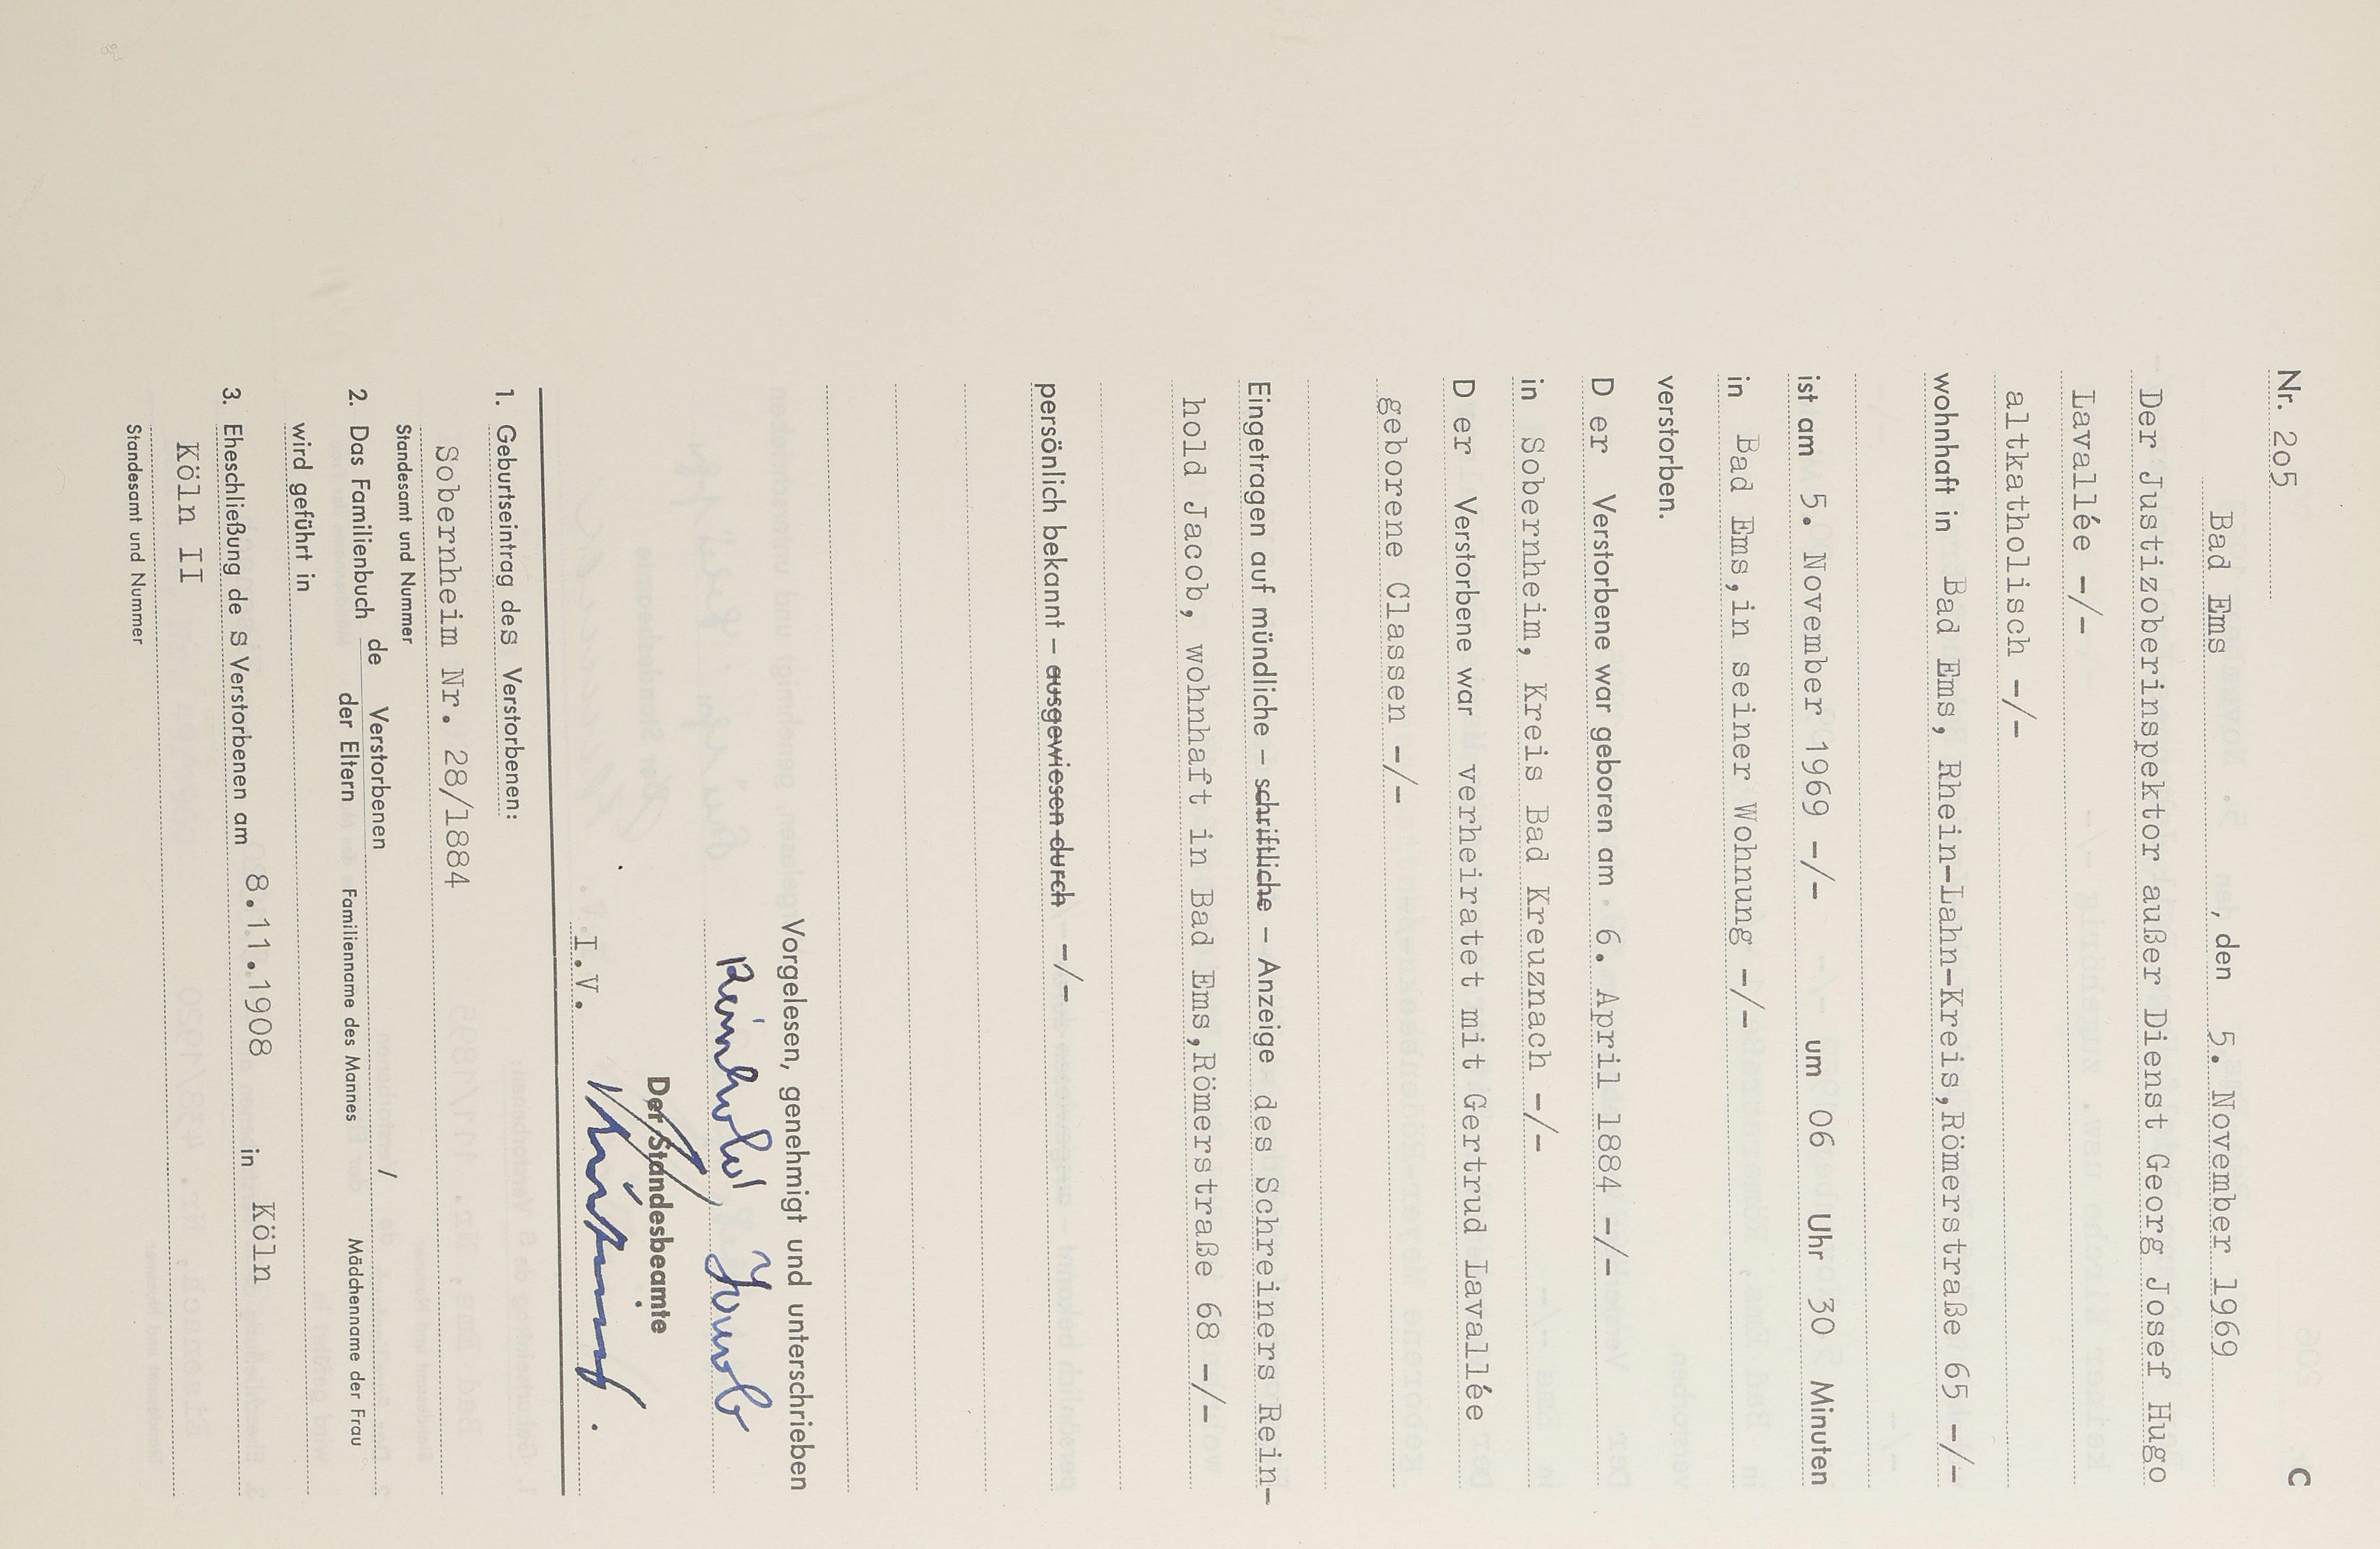 Nr. 2o5 C
Bad Ems , den 5. November 1969
Der Justizoberinspektor außer Dienst Georg Josef Hugo
Lavallée -/-
altkatholisch -/-
wohnhaft in Bad Ems, Rhein-Lahn-Kreis,Römerstraße 65 -/-
ist am 5. November 1969 -/- um 06 Uhr 30 Minuten
in Bad Ems,in seiner Wohnung -/-
verstorben.
D er Verstorbene war geboren am 6. April 1884 -/-
in Sobernheim, Kreis Bad Kreuznach -/-
D er Verstorbene war verheiratet mit Gertrud Lavallée
geborene Classen -/-
Eingetragen auf mündliche – schriftliche – Anzeige des Schreiners Rein-
hold Jacob, wohnhaft in Bad Ems,Römerstraße 68 -/-
persönlich bekannt – ausgewiesen durch -/-
Vorgelesen, genehmigt und unterschrieben
Reinhold Jacob
Der Standesbeamte
I.V.
1. Geburtseintrag des Verstorbenen:
Sobernheim Nr. 28/1884
Standesamt und Nummer
2. Das Familienbuch de Verstorbenen /
der Eltern Familienname des Mannes Mädchenname der Frau
wird geführt in
3. Eheschließung de s Verstorbenen am 8.11.1908 in Köln
Köln II
Standesamt und Nummer